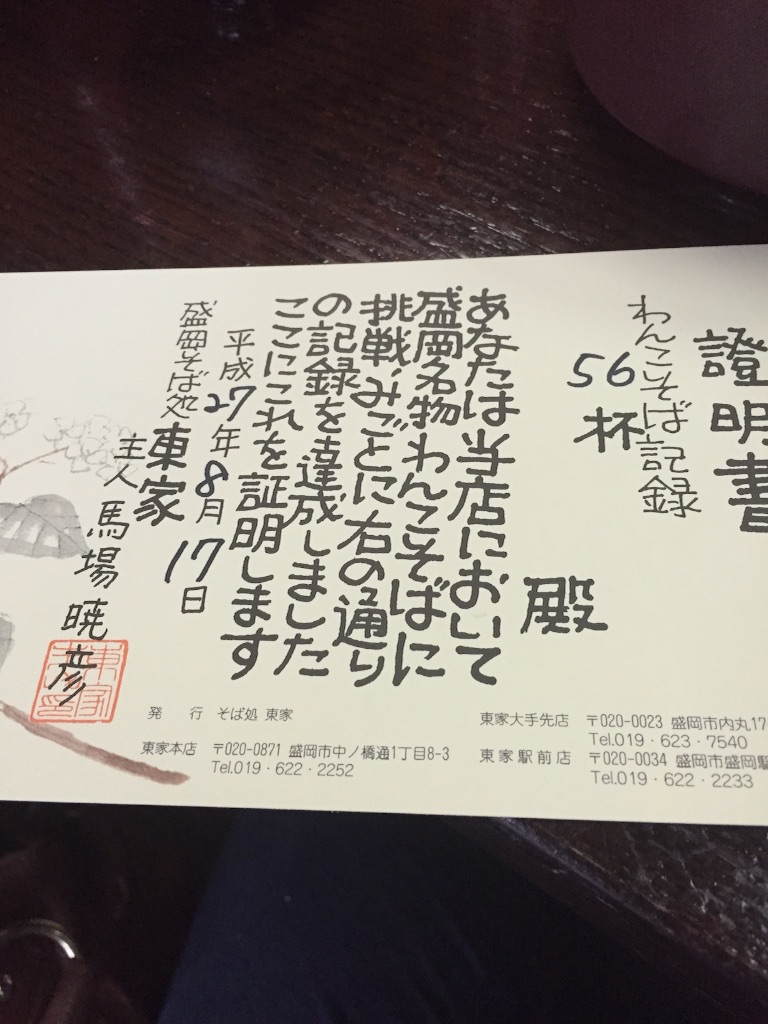 證明書
わんこそば記録
56杯
殿
あなたは当店において
盛岡名物わんこそばに
挑戦、みごとに右の通り
の記録を達成しました
ここにこれを証明します
平成27年8月17日
盛岡そば処 東家
主人 馬場 暁彦
発 行 そば処 東家
東家本店 〒020-0871 盛岡市中ノ橋通1丁目8-3
Tel.019・622・2252
東家大手先店 〒020-0023 盛岡市内丸17
Tel.019・623・7540
東家駅前店 〒020-0034 盛岡市盛岡駅
Tel.019・622・2233